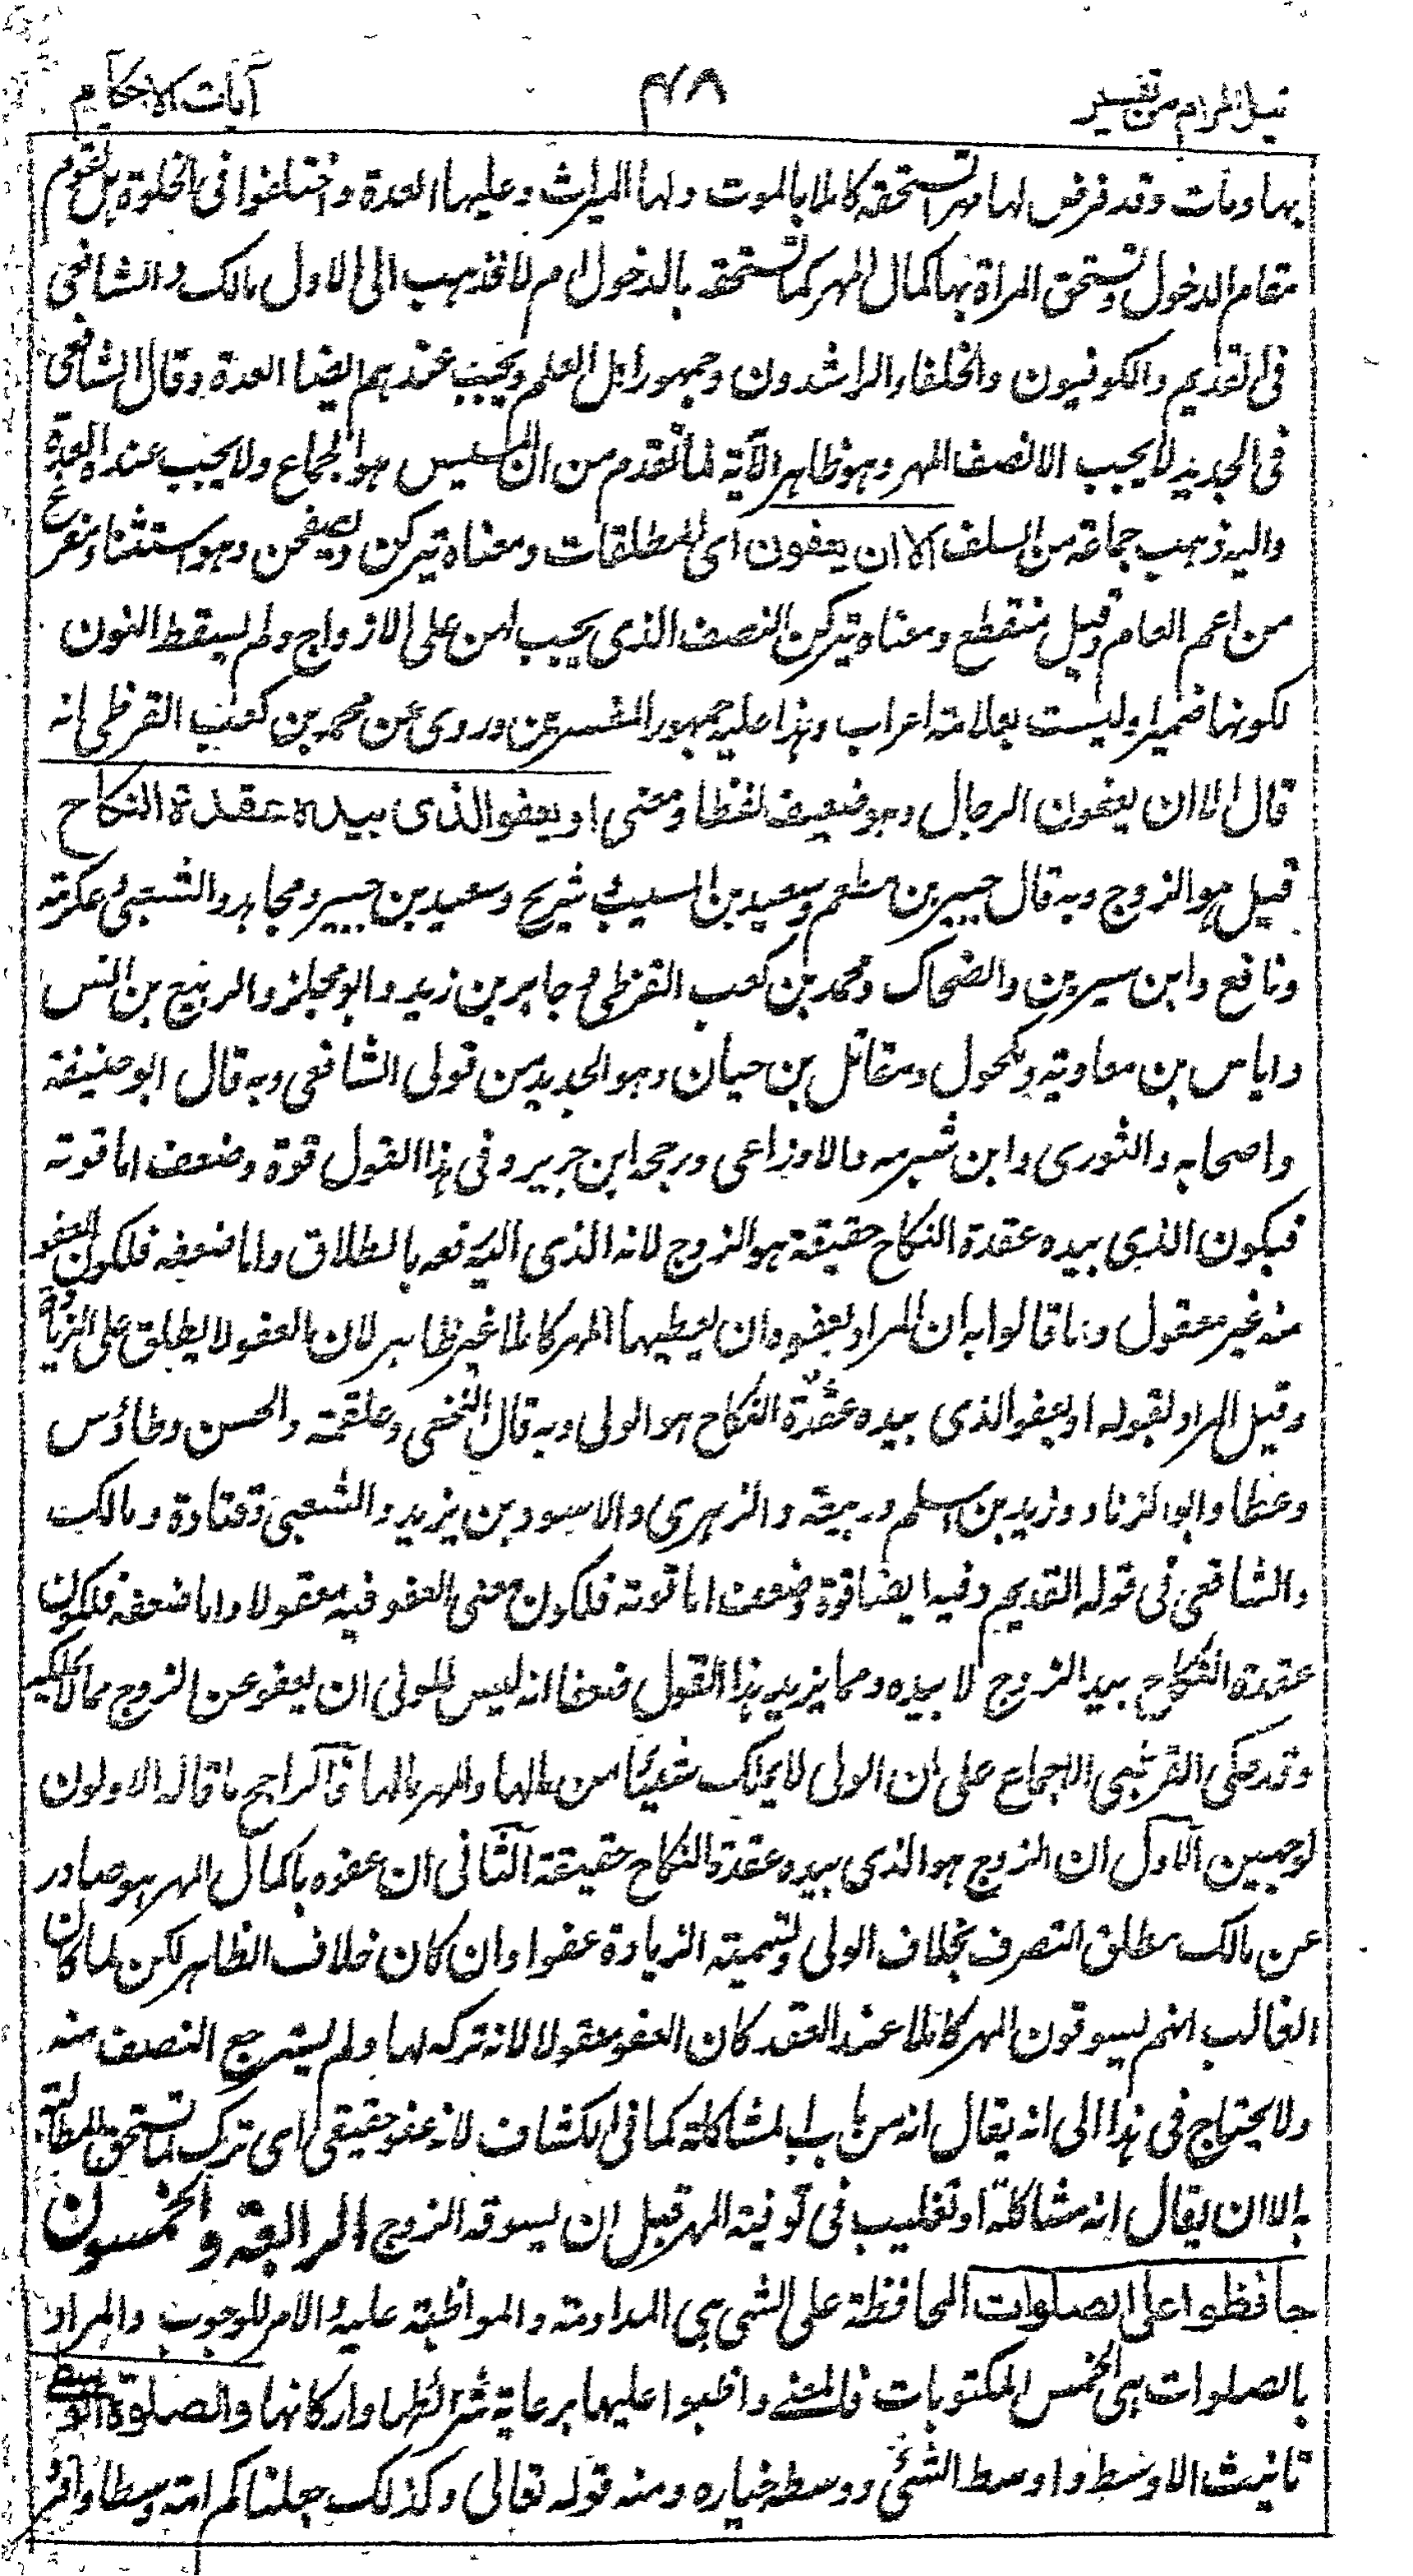 نيل المرام من تفسير ٤٨ آيات الاحكام
بها ومات وقد فرض لها مهرا تستحقه كاملا بالموت ولها الميراث وعليها العدة واختلفوا فى الخلوة هل تقوم
مقام الدخول وتستحق المراة بها كمال المهر كما تستحقه بالدخول ام لا فذهب الى الاول مالك والشافعى
فى القديم والكوفيون والخلفاء الراشدون وجمهور اهل العلم ويجب عندهم ايضا العدة وقال الشافعى
فى الجديد لا يجب الا نصف المهر وهو ظاهر الآية لما تقدم من ان المسيس هو الجماع ولا يجب عنده العدة
واليه ذهب جماعة من السلف الا ان يعفون اى المطلقات ومعناه يتركن ويصفحن وهو استثناء مفرغ
من اعم العام وقيل منقطع ومعناه يتركن النصف الذى يجب لهن على الازواج ولم يسقط النون
لكونها ضميرا وليست بعلامة اعراب وهذا عليه جمهور المفسرين وروى عن محمد بن كعب القرظى انه
قال الا ان يعفون الرجال وهو ضعيف لفظا ومعنى او يعفو الذى بيده عقدة النكاح
قيل هو الزوج وبه قال جبير بن مطعم وسعيد بن المسيب وشريح وسعيد بن جبير ومجاهد والشعبى وعكرمة
ونافع وابن سيرين والضحاك ومحمد بن كعب القرظى وجابر بن زيد وابو مجلز والربيع بن انس
واياس بن معاوية ومكحول ومقاتل بن حيان وهو الجديد من قولى الشافعى وبه قال ابو حنيفة
واصحابه والثورى وابن شبرمه والاوزاعى ورجحه ابن جرير وفى هذا القول قوة وضعف اما قوته
فيكون الذى بيده عقدة النكاح حقيقة هو الزوج لانه الذى اليه رفعه بالطلاق واما ضعفه فلكون العفو
منه غير معقول وما قالوا به ان المراد بعفوه ان يعطيها المهر كاملا غير ظاهر لان العفو لا يطلق على الزيادة
وقيل المراد بقوله او يعفو الذى بيده عقدة النكاح هو الولى وبه قال النخعى وعلقمة والحسن وطاؤس
وعطا وابو الزناد وزيد بن اسلم وربيعة والزهرى والاسود بن يزيد والشعبى وقتادة ومالك
والشافعى فى قوله القديم وفيه ايضا قوة وضعف اما قوته فلكون معنى العفو فيه معقولا واما ضعفه فلكون
عقدة النكاح بيد الزوج لا بيده ومما يزيد هذا القول ضعفا انه ليس للولى ان يعفو عن الزوج مما لا يملكه
وقد حكى القرطبى الاجماع على ان الولى لا يملك شيئا من مالها والمهر مالها فالراجح ما قاله الاولون
لوجهين الاول ان الزوج هو الذى بيده عقدة النكاح حقيقة الثانى ان عفوه باكمال المهر هو صادر
عن مالك مطلق التصرف بخلاف الولى وتسمية الزيادة عفوا وان كان خلاف الظاهر لكن لما كان
الغالب انهم يسوقون المهر كاملا عند العقد كان العفو معقولا لانه تركه لها ولم يسترجع النصف منه
ولا يحتاج فى هذا الى انه يقال انه من باب المشاكلة كما فى الكشاف لانه عفو حقيقى اى ترك ما تستحق المطالبة
به الا ان يقال انه مشاكلة او تغليب فى توفية المهر قبل ان يسوقه الزوج الرابعة والخمسون
حافظوا على الصلوات المحافظة على الشى هى المداومة والمواظبة عليه والامر للوجوب والمراد
بالصلوات هى الخمس المكتوبات فالمعنے واظبوا عليها برعاية شرائطها واركانها والصلوة الوسطى
تانيث الاوسط واوسط الشئ ووسطه خياره ومنه قوله تعالى وكذلك جعلناكم امة وسطا